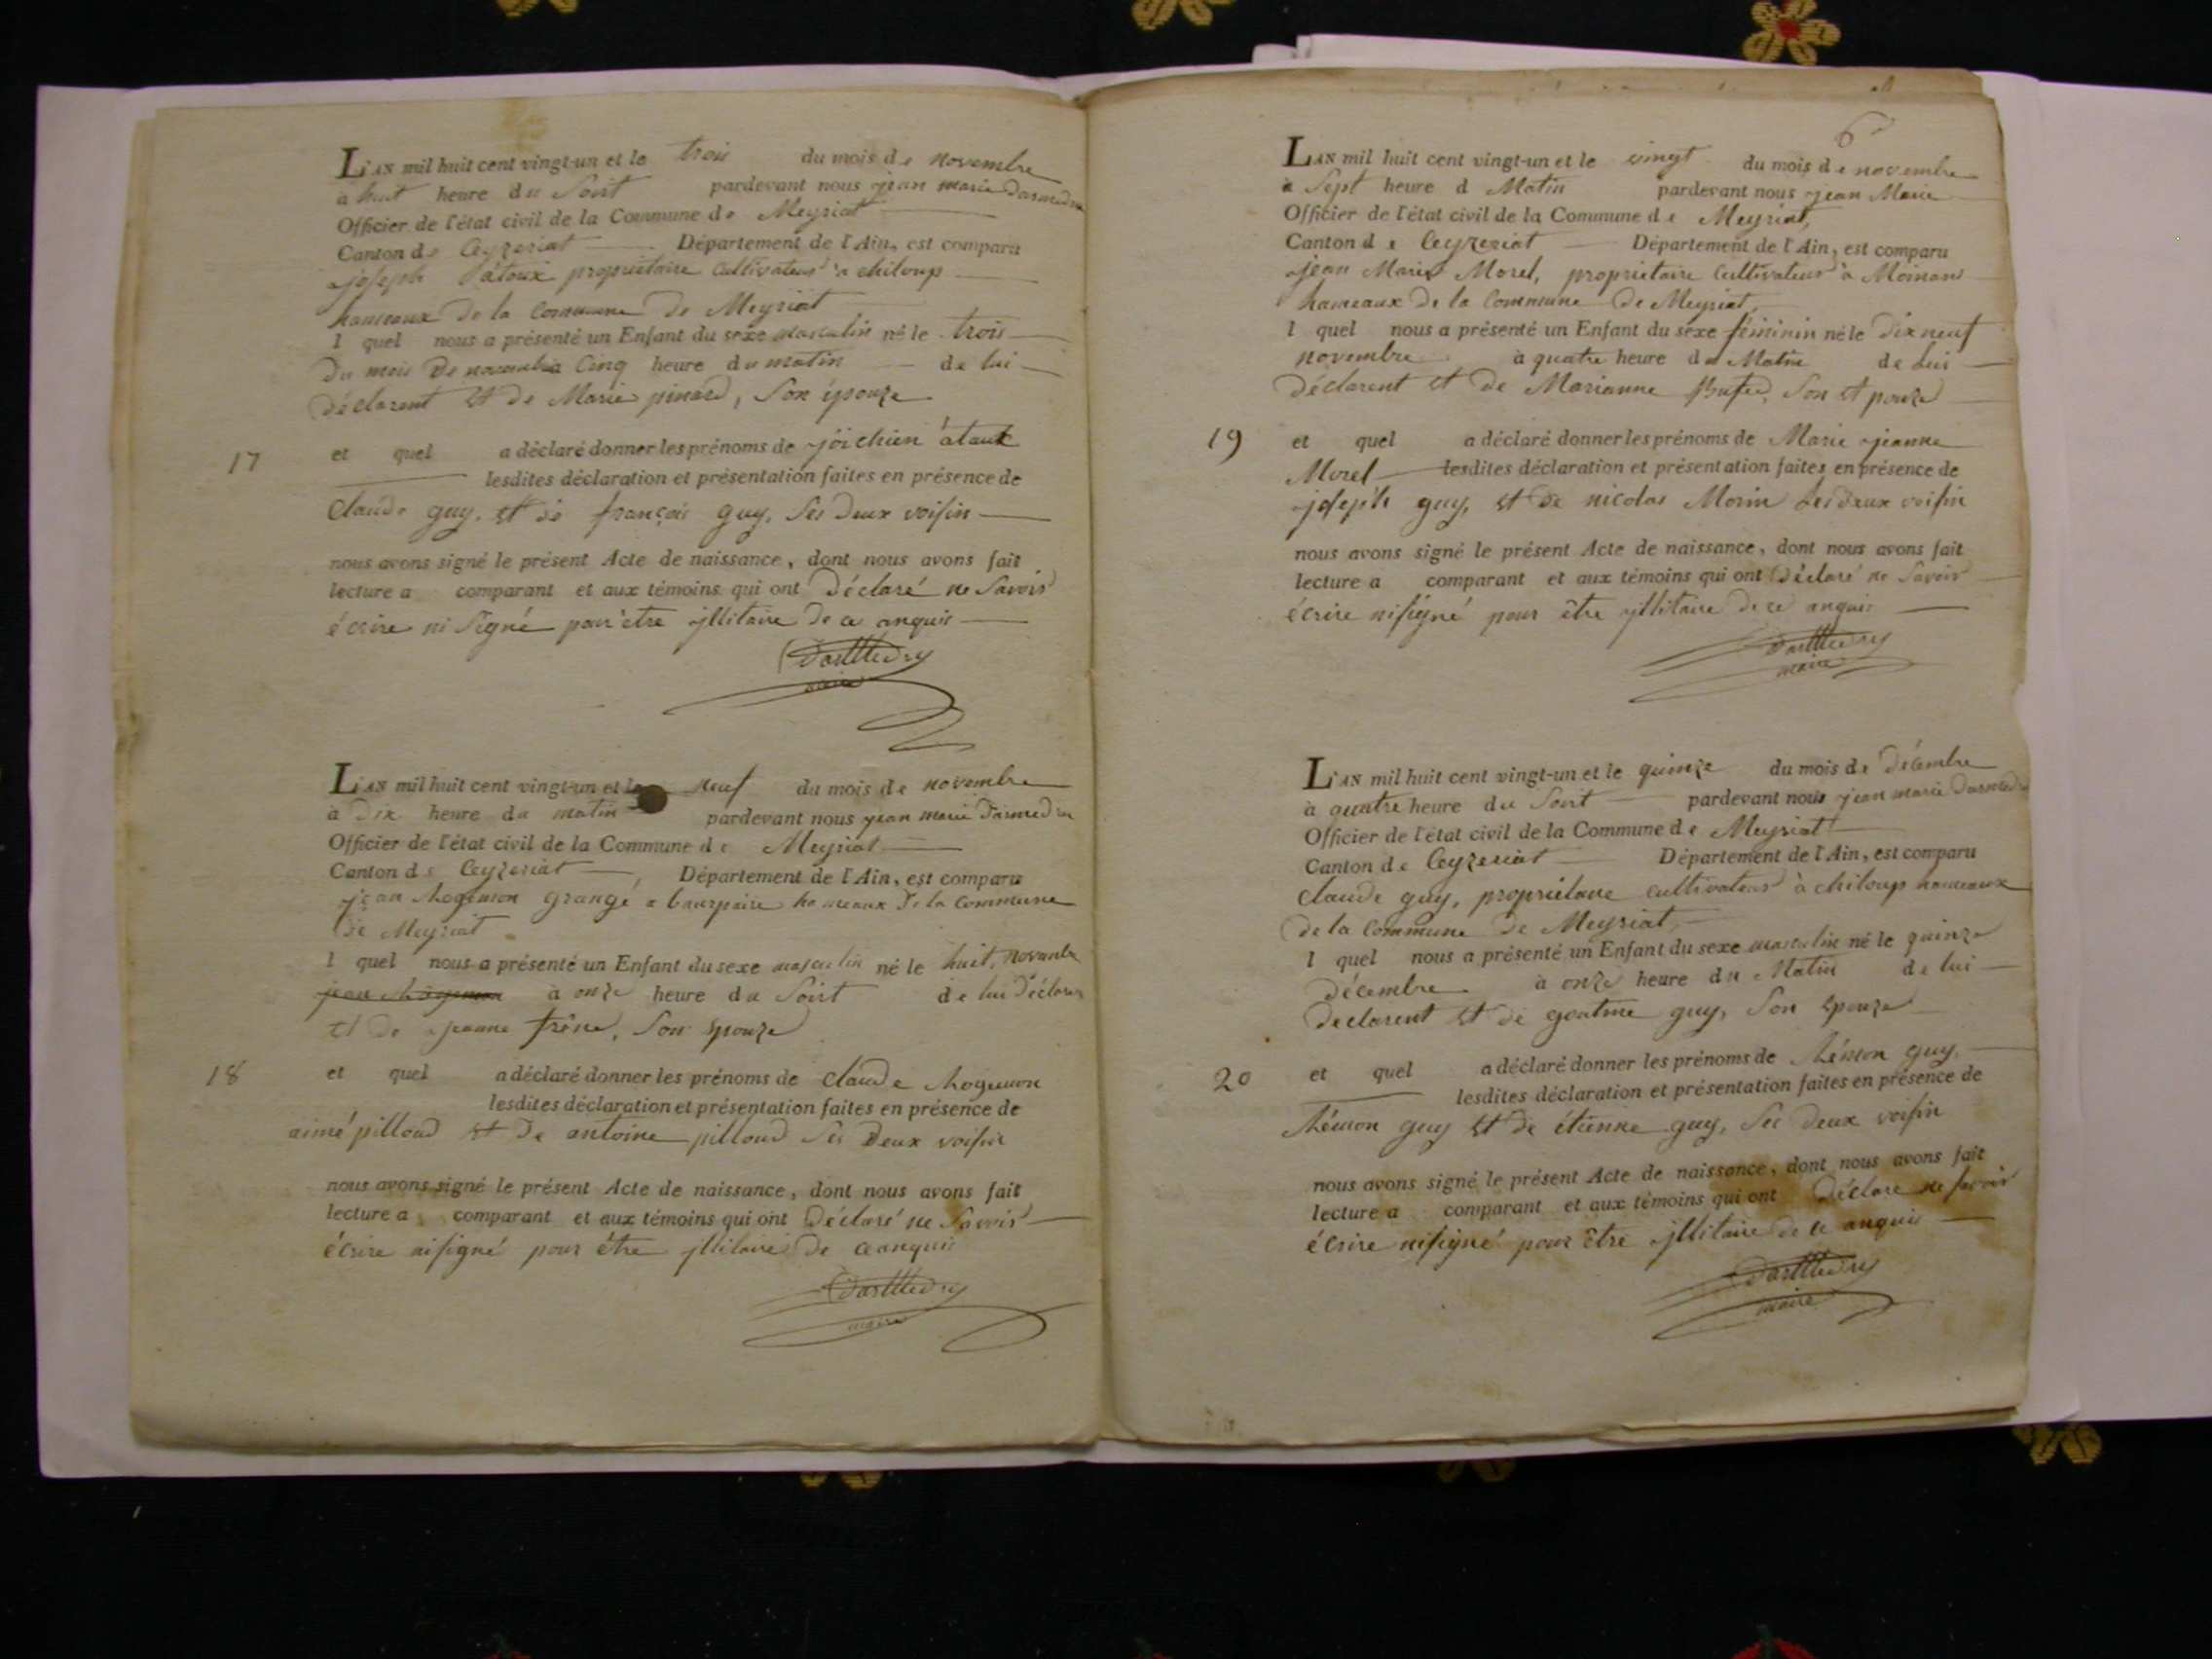 L'AN mil huit cent vingt-un et le trois du mois de novembre
a huit heure du Soirt pardevant nous jean marie
Officier de l'état civil de la Commune de Meyriat
Canton de Ceyzeriat Département de l'Ain, est comparu
joseph proprietaire Cultivateur a chiloup
hameaux De la Commune De Meyriat
l quel nous a présenté un Enfant du sexe masculin né le trois
Du mois De novembre a Cinq heure du matin de lui
déclarent et De Marie pinard, Son épouze
17 et quel a déclaré donner les prénoms de
lesdites déclaration et présentation faites en présence de
Claude guy, et de françois guy, Ses Deux voisin
nous avons signé le présent Acte de naissance, dont nous avons fait
lecture a comparant et aux témoins qui ont Déclaré ne Savoir
écrire ni Signé pour être jllitaire De ce anquis
maire
L'AN mil huit cent vingt-un et le neuf du mois de novembre
à Dix heure du matin pardevant nous jean marie
Officier de l'état civil de la Commune de Meyriat
Canton de Ceyzeriat Département de l'Ain, est comparu
jean grangé a hameaux De la Commune
De Meyriat
l quel nous a présenté un Enfant du sexe masculin né le huit, novembre
à onze heure du Soirt de lui Déclarent
et De jeanne frêne, Son Epouze
18 et quel a déclaré donner les prénoms de claude
lesdites déclaration et présentation faites en présence de
aimé pilloud et De antoine pilloud Ses Deux voisin
nous avons signé le présent Acte de naissance, dont nous avons fait
lecture a comparant et aux témoins qui ont Déclaré ne Savoir
écrire ni signé pour être jllitaire De ce anquis
maire
6
L'AN mil huit cent vingt-un et le vingt du mois de novembre
à Sept heure d Matin pardevant nous jean Marie
Officier de l'état civil de la Commune de Meyriat,
Canton de Ceyzeriat Département de l'Ain, est comparu
jean Marie Morel, proprietaire Cultivateur à
hameaux De la Commune De Meyriat,
l quel nous a présenté un Enfant du sexe féminin né le Dix neuf
novembre à quatre heure du Matin de Lui
déclarent et de Marianne Son et pouze
19 et quel a déclaré donner les prénoms de Marie jeanne
Morel lesdites déclaration et présentation faites en présence de
joseph guy, et De nicolas Morin Ses deux voisin
nous avons signé le présent Acte de naissance, dont nous avons fait
lecture a comparant et aux témoins qui ont Déclaré ne Savoir
écrire ni signé pour être jllitaire De ce anquis
maire
L'AN mil huit cent vingt-un et le quinze du mois de Décembre
à quatre heure du Soirt pardevant nous jean marie
Officier de l'état civil de la Commune de Meyriat
Canton de Ceyzeriat Département de l'Ain, est comparu
Claude guy, propriétaire cultivateur à chiloup hameaux
de la Commune De Meyriat,
l quel nous a présenté un Enfant du sexe masculin né le quinze
décembre à onze heure du Matin de lui
Declarent et de guy, Son Epouze
20 et quel a déclaré donner les prénoms de guy,
lesdites déclaration et présentation faites en présence de
guy et De étienne guy, Ses Deux voisin
nous avons signé le présent Acte de naissance, dont nous avons fait
lecture a comparant et aux témoins qui ont Déclare ne Savoir
écrire ni signé pour être jllitaire de ce anquis
maire